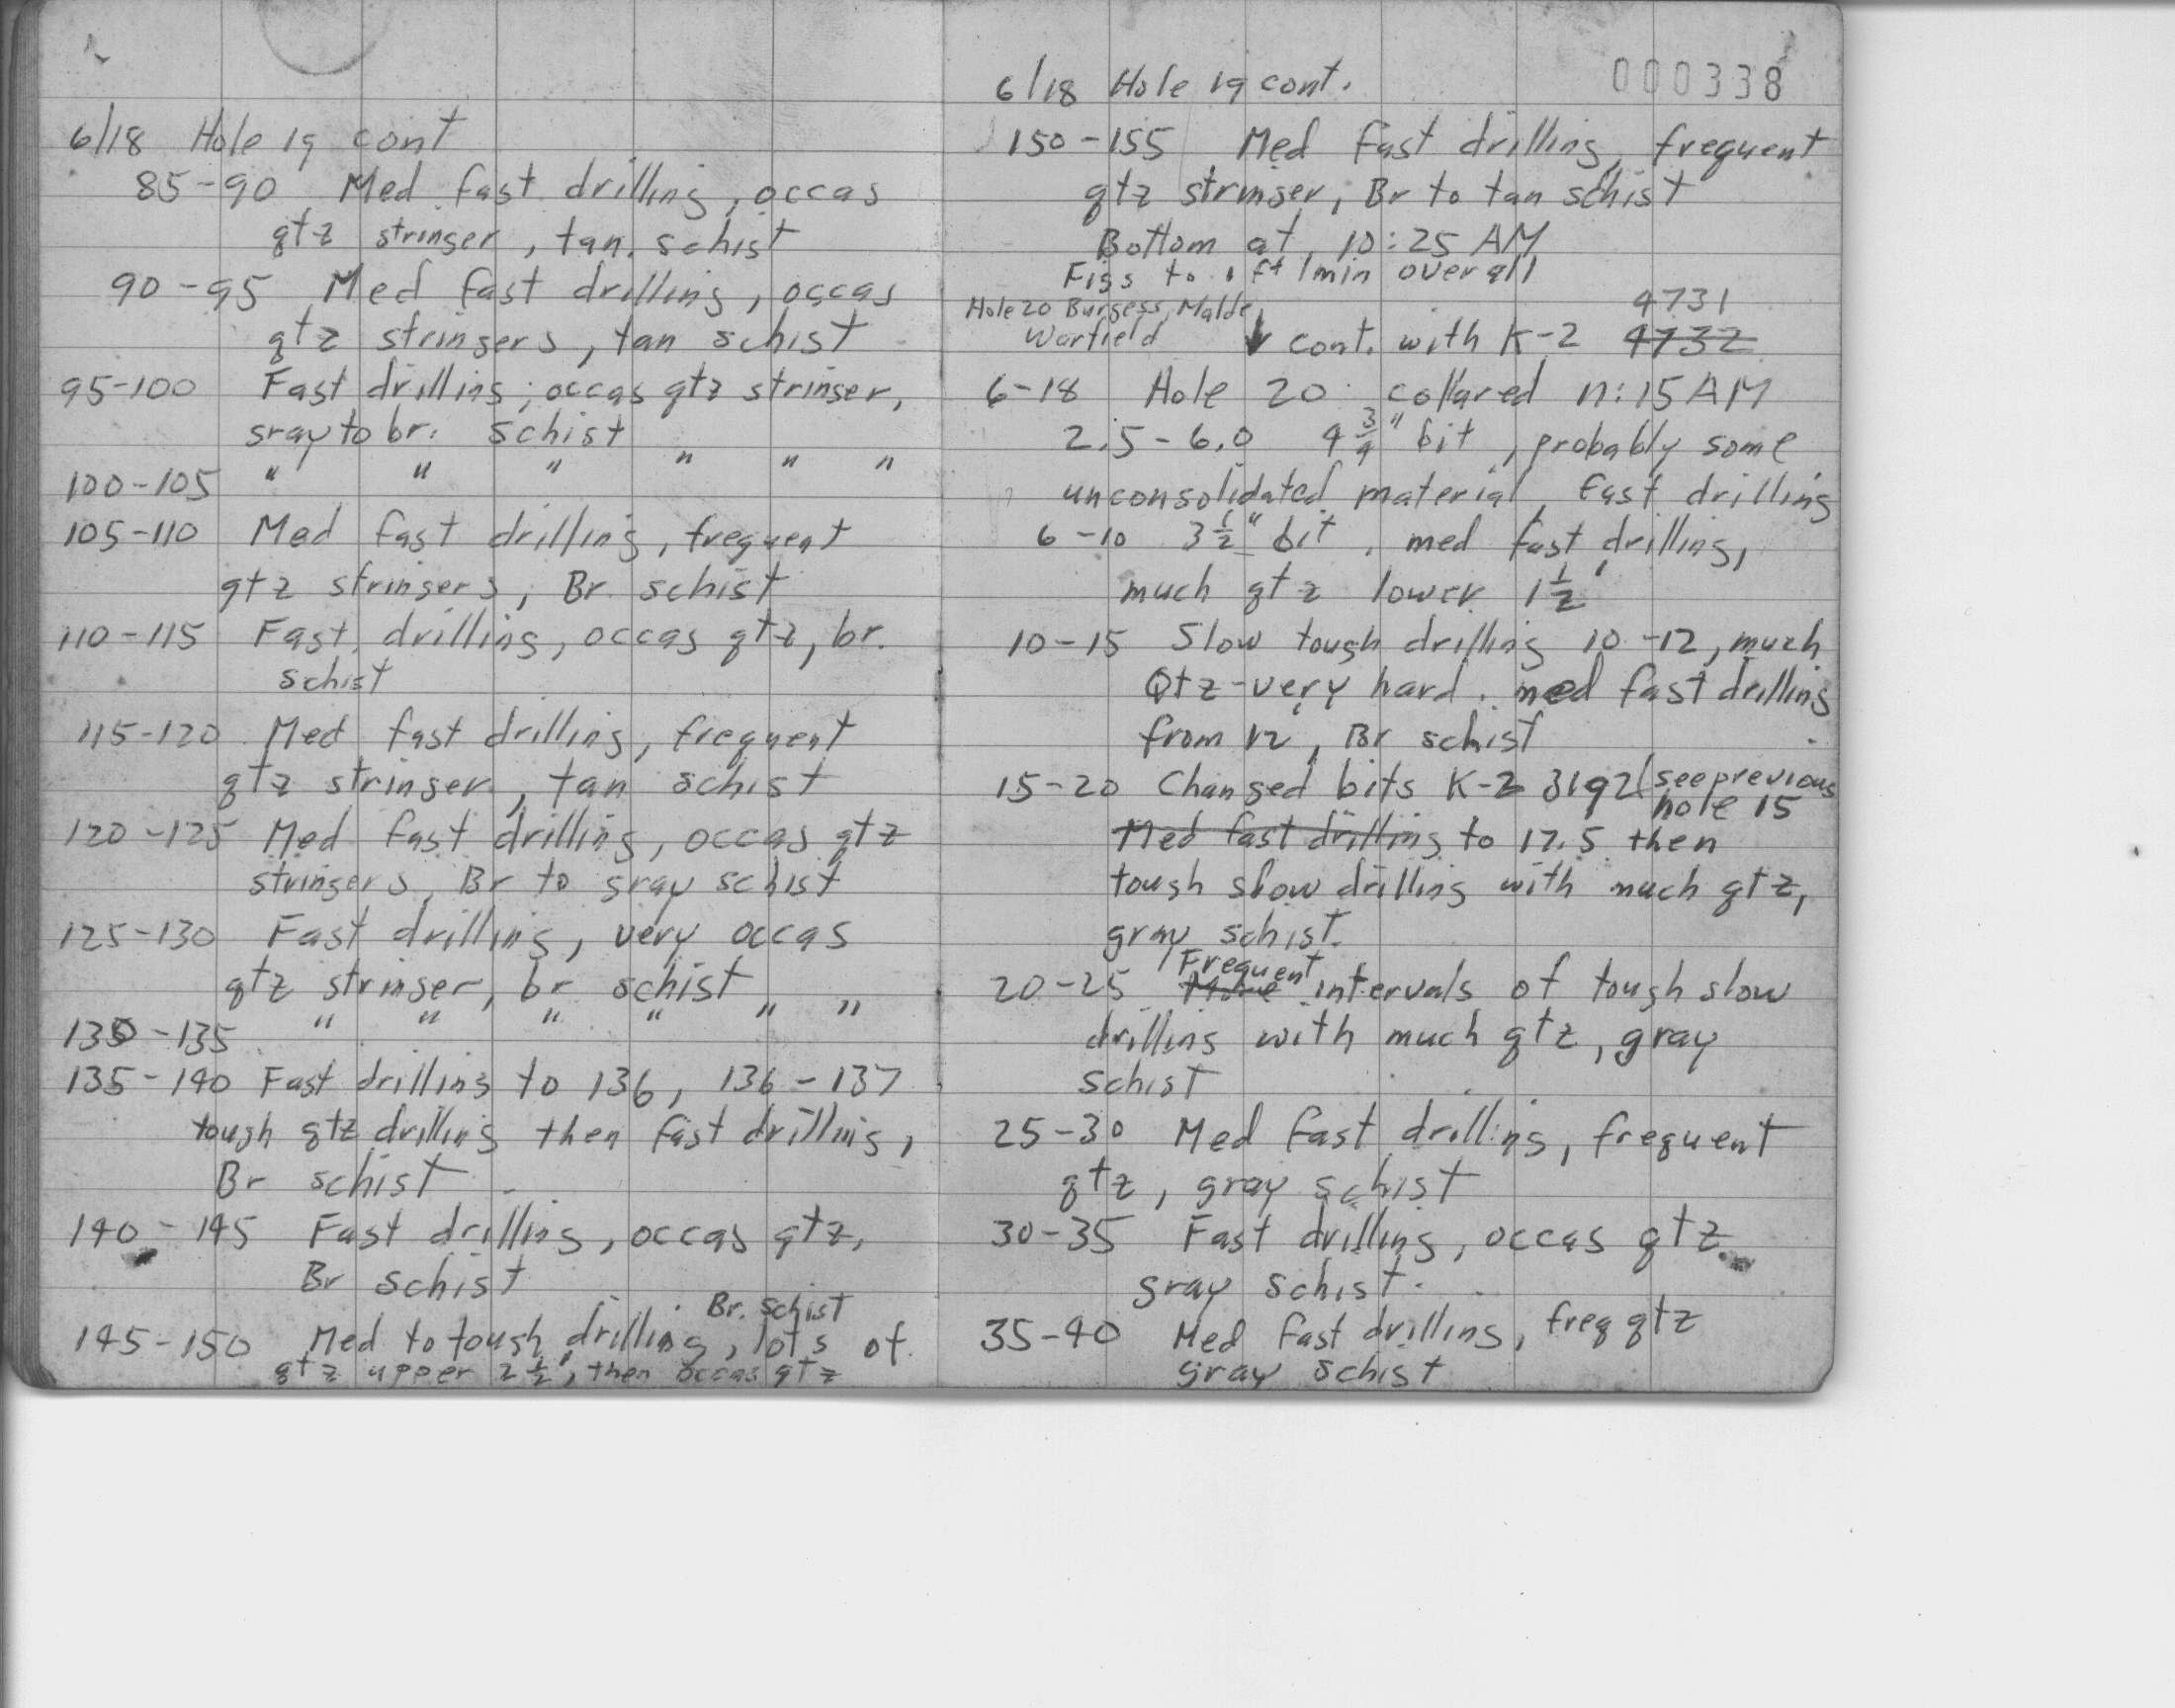 6/18 Hole 19 cont
85-90 Med fast drilling, occas
qtz stringer, tan. schist
90-95 Med fast drilling, occas
qtz stringers, tan schist
95-100 Fast drilling, occas qtz stringer,
gray to br. schist
100-105 " " " " " "
105-110 Med fast drilling, frequent
qtz stringers, Br schist
110-115 Fast drilling, occas qtz, br.
schist
115-120 Med fast drilling, frequent
qtz stringer, tan schist
120-125 Med fast drilling, occas qtz
stringers, Br to gray schist
125-130 Fast drilling, very occas
qtz stringer, br schist
130-135 " " " " " "
135-140 Fast drilling to 136, 136-137
tough qtz drilling then fast drilling,
Br schist
140-145 Fast drilling, occas qtz,
Br schist
Br. schist
145-150 Med to tough drilling, lots of
qtz upper 2 1/2', then occas qtz
000338
6/18 Hole 19 cont.
150-155 Med fast drilling, frequent
qtz stringer, Br to tan schist
Bottom at 10:25 AM
Figs to 1 ft/min overall
Hole 20 Burgess, Malde,
Warfield
4731
cont. with K-2 4732
6-18 Hole 20 collared 11:15 AM
2.5-6.0 4 3/4" bit, probably some
unconsolidated material, fast drilling
6-10 3 1/2" bit, med fast drilling,
much qtz lower 1 1/2'
10-15 Slow tough drilling 10-12, much
Qtz-very hard. med fast drilling
from 12', Br schist
15-20 Changed bits K-2 3192 (see previous
hole 15
Med fast drilling to 17.5 then
tough slow drilling with much qtz,
gray schist.
Frequent
20-25 intervals of tough slow
drilling with much qtz, gray
schist
25-30 Med fast drilling, frequent
qtz, gray schist
30-35 Fast drilling, occas qtz
gray schist.
35-40 Med fast drilling, freq qtz
gray schist